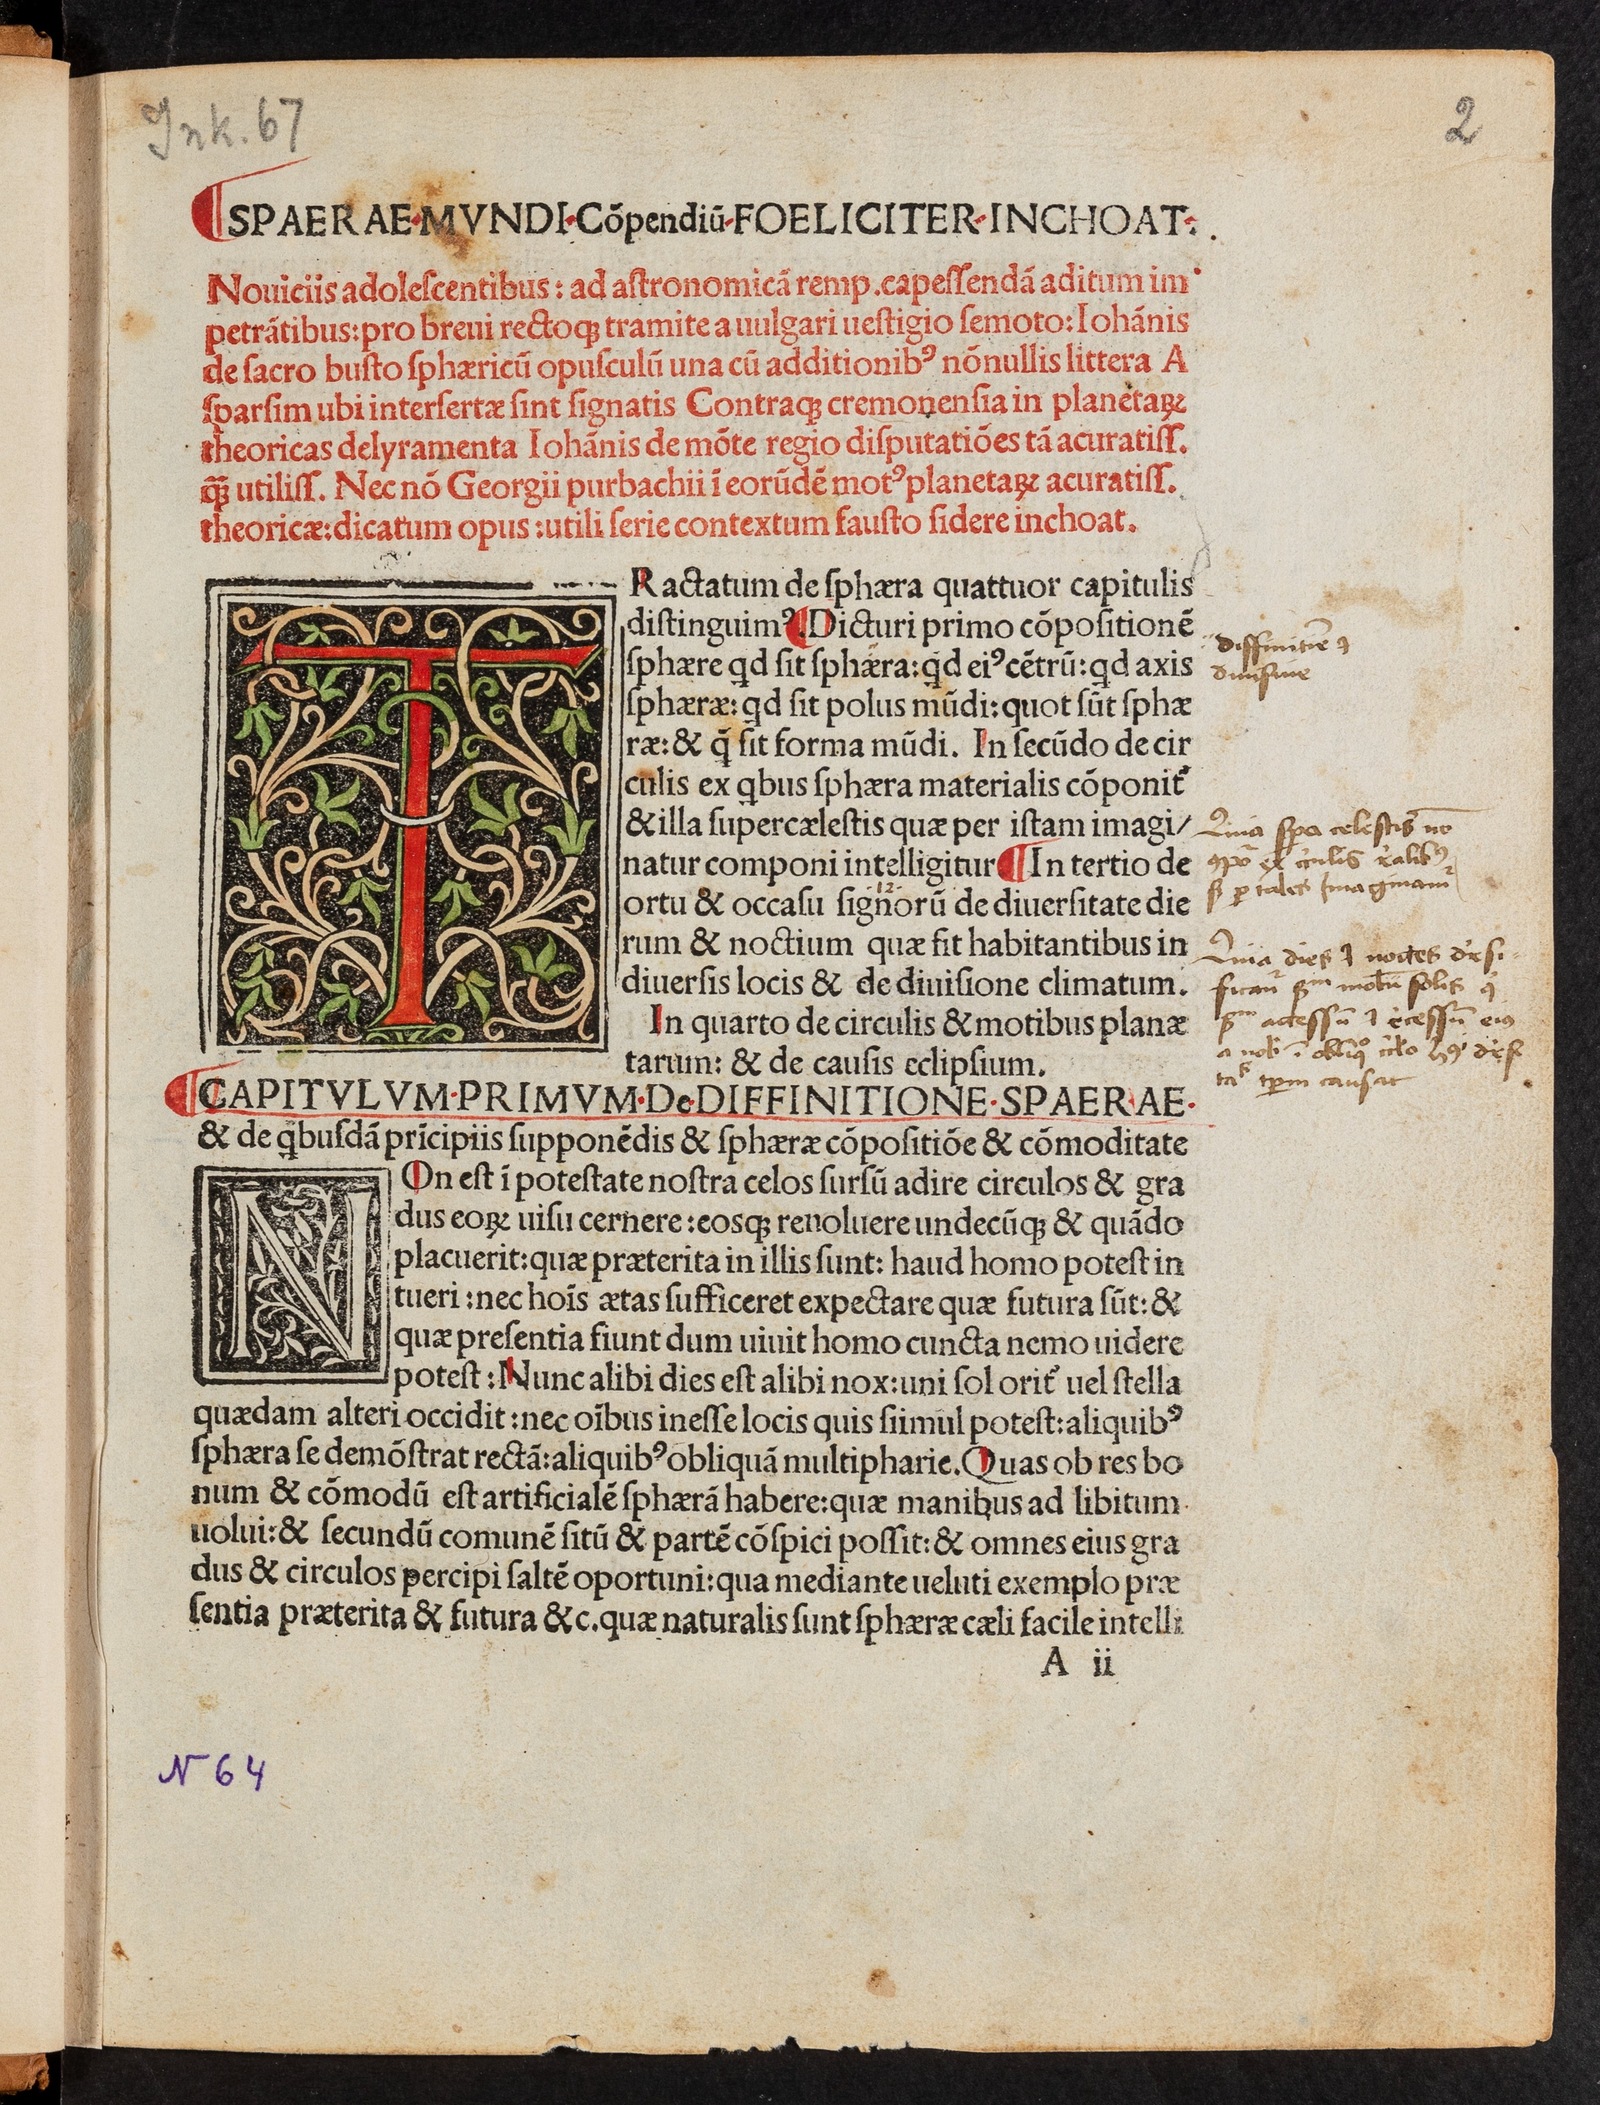 Ink. 67
2
SPAERAE·MVNDI·Cõpendiũ·FOELICITER·INCHOAT:.
Nouiciis adolescentibus: ad astronomicã remp. capessendã aditum im
petrãtibus: pro breui rectoqꝫ tramite a uulgari uestigio semoto: Iohãnis
de sacro busto sphæricũ opusculũ una cũ additionibꝰ nõnullis littera A
sparsim ubi intersertæ sint signatis Contraqꝫ cremonensia in planetaꝝ
theoricas delyramenta Iohãnis de mõte regio disputatiões tã acuratiss.
q̃ꝫ utiliss. Nec nõ Georgii purbachii ĩ eorũdẽ motꝰ planetaꝝ acuratiss.
theoricæ: dicatum opus: utili serie contextum fausto sidere inchoat.
TRactatum de sphæra quattuor capitulis
distinguimꝰ. Dicturi primo cõpositionẽ
sphære qd sit sphæra: qd eiꝰ cẽtrũ: qd axis
sphæræ: qd sit polus mũdi: quot sũt sphæ
ræ: & q̃ sit forma mũdi. In secũdo de cir
culis ex qbus sphæra materialis cõponit᷑
& illa supercælestis quæ per istam imagi/
natur componi intelligitur ¶ In tertio de
ortu & occasu signorũ de diuersitate die
rum & noctium quæ fit habitantibus in
diuersis locis & de diuisione climatum.
In quarto de circulis & motibus planæ
tarum: & de causis eclipsium.
¶ CAPITVLVM·PRIMVM·De·DIFFINITIONE·SPAERAE·
& de qbusdã prĩcipiis supponẽdis & sphæræ cõpositiõe & cõmoditate
NOn est ĩ potestate nostra celos sursũ adire circulos & gra
dus eoꝝ uisu cernere: eosqꝫ reuoluere undecũqꝫ & quãdo
placuerit: quæ præterita in illis sunt: haud homo potest in
tueri: nec hoĩs ætas sufficeret expectare quæ futura sũt: &
quæ presentia fiunt dum uiuit homo cuncta nemo uidere
potest: Nunc alibi dies est alibi nox: uni sol orit᷑ uel stella
quædam alteri occidit: nec oĩbus inesse locis quis siimul potest: aliquibꝰ
sphæra se demõstrat rectã: aliquibꝰ obliquã multipharie. Quas ob res bo
num & cõmodũ est artificialẽ sphærã habere: quæ manibus ad libitum
uolui: & secundũ comunẽ sitũ & partẽ cõspici possit: & omnes eius gra
dus & circulos percipi saltẽ oportuni: qua mediante ueluti exemplo præ
sentia præterita & futura &c. quæ naturalis sunt sphæræ cæli facile intelli
A ii
N 64
Quia celestis
imaginam᷑
Quia dies noctes
solis
causat